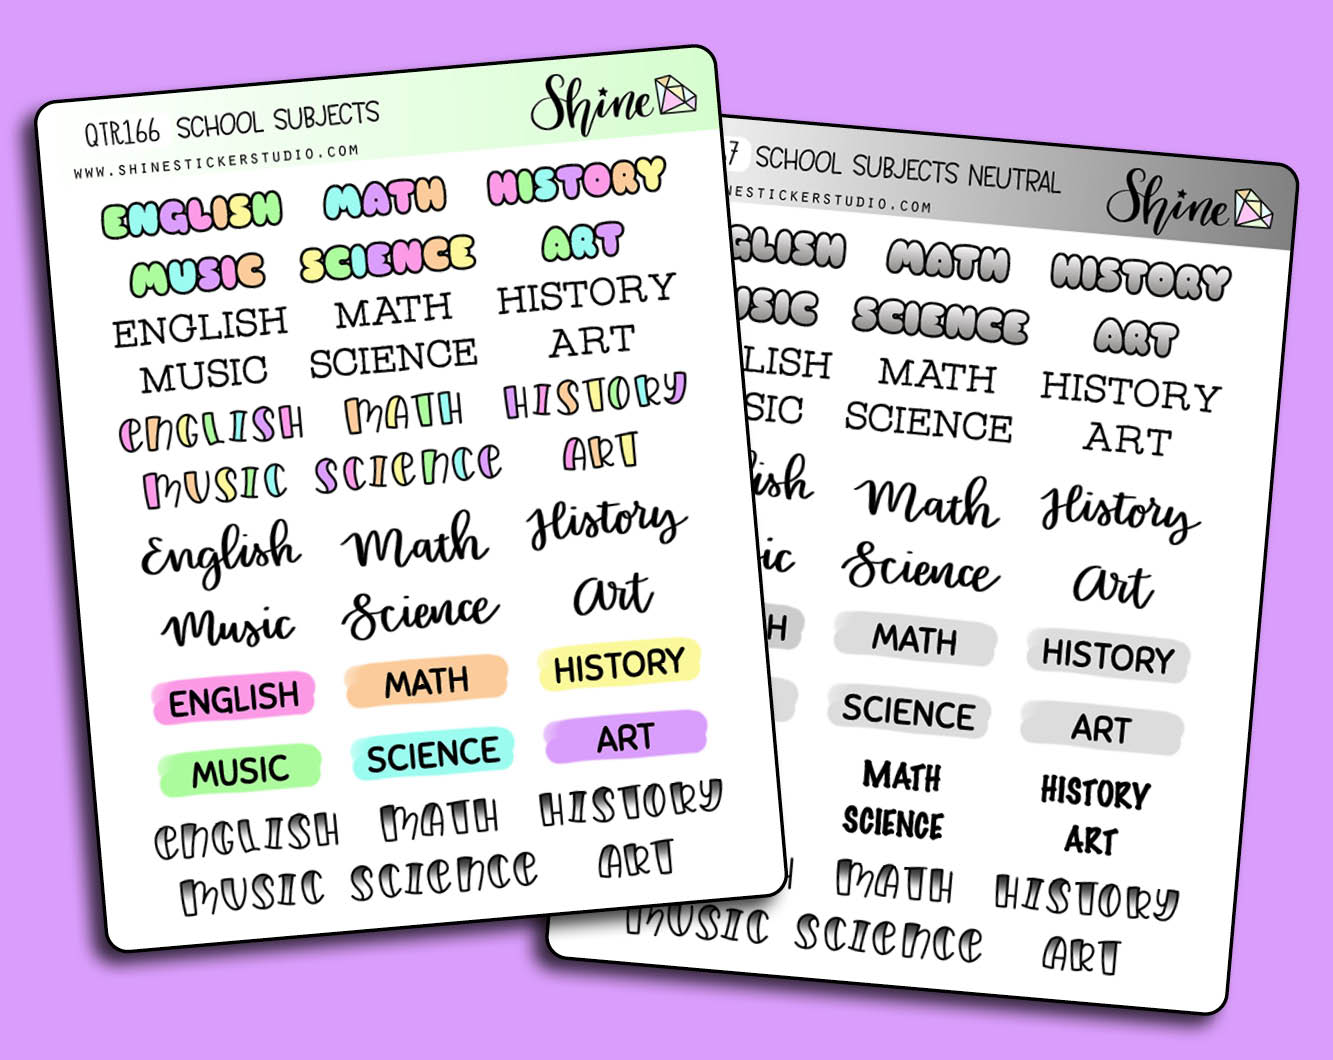 QTR166 SCHOOL SUBJECTS
Shine
WWW.SHINESTICKERSTUDIO.COM
ENGLISH MATH HISTORY
MUSIC SCIENCE ART
ENGLISH MATH HISTORY
MUSIC SCIENCE ART
ENGLISH MATH HISTORY
MUSIC SCIENCE ART
English Math History
Music Science Art
ENGLISH MATH HISTORY
MUSIC SCIENCE ART
ENGLISH MATH HISTORY
MUSIC SCIENCE ART
7 SCHOOL SUBJECTS NEUTRAL
Shine
NESTICKERSTUDIO.COM
GLISH MATH HISTORY
USIC SCIENCE ART
LISH MATH HISTORY
SIC SCIENCE ART
ish Math History
ic Science Art
H MATH HISTORY
SCIENCE ART
MATH HISTORY
SCIENCE ART
H MATH HISTORY
MUSIC SCIENCE ART